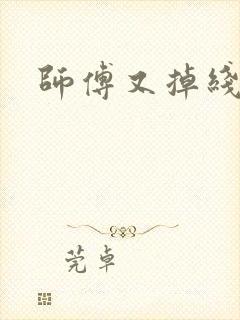 師傅又掉綫
莞卓